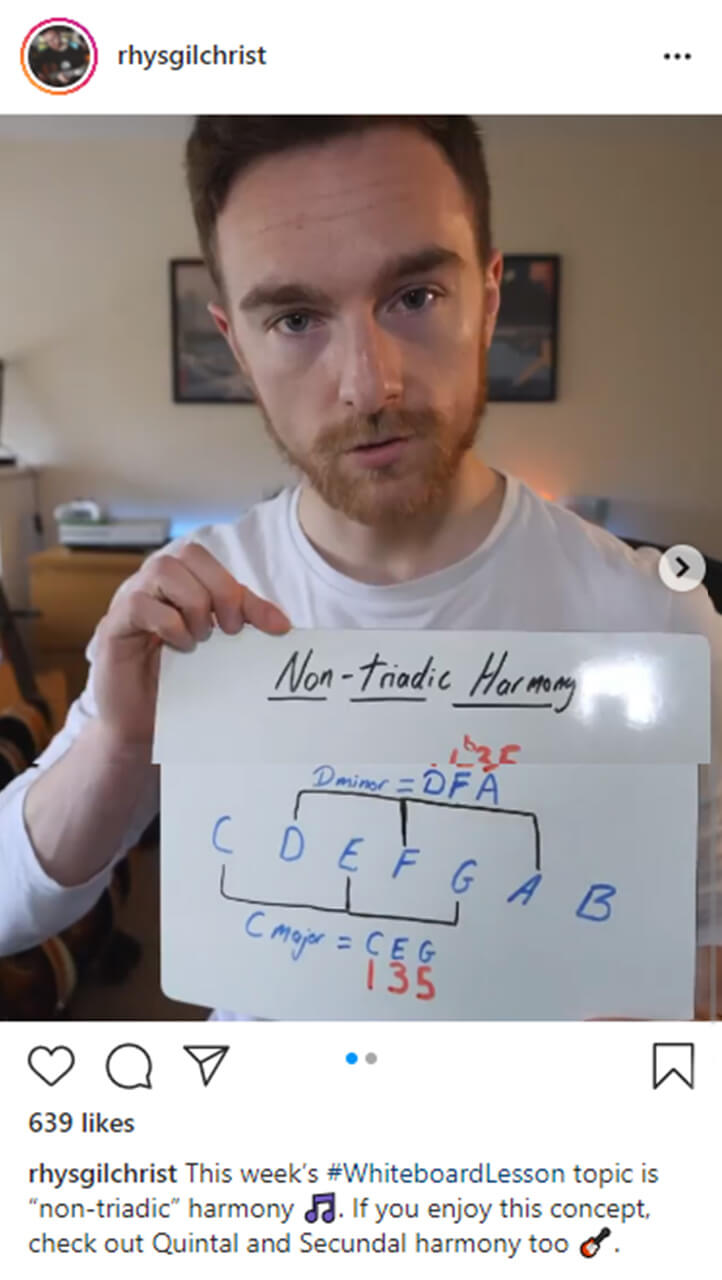 rhysgilchrist
Non-triadic Harmony
1 b3 5
Dminor = DFA
C D E F G A B
C major = C E G
1 3 5
639 likes
rhysgilchrist This week's #WhiteboardLesson topic is
“non-triadic” harmony 🎵. If you enjoy this concept,
check out Quintal and Secundal harmony too 🎸.